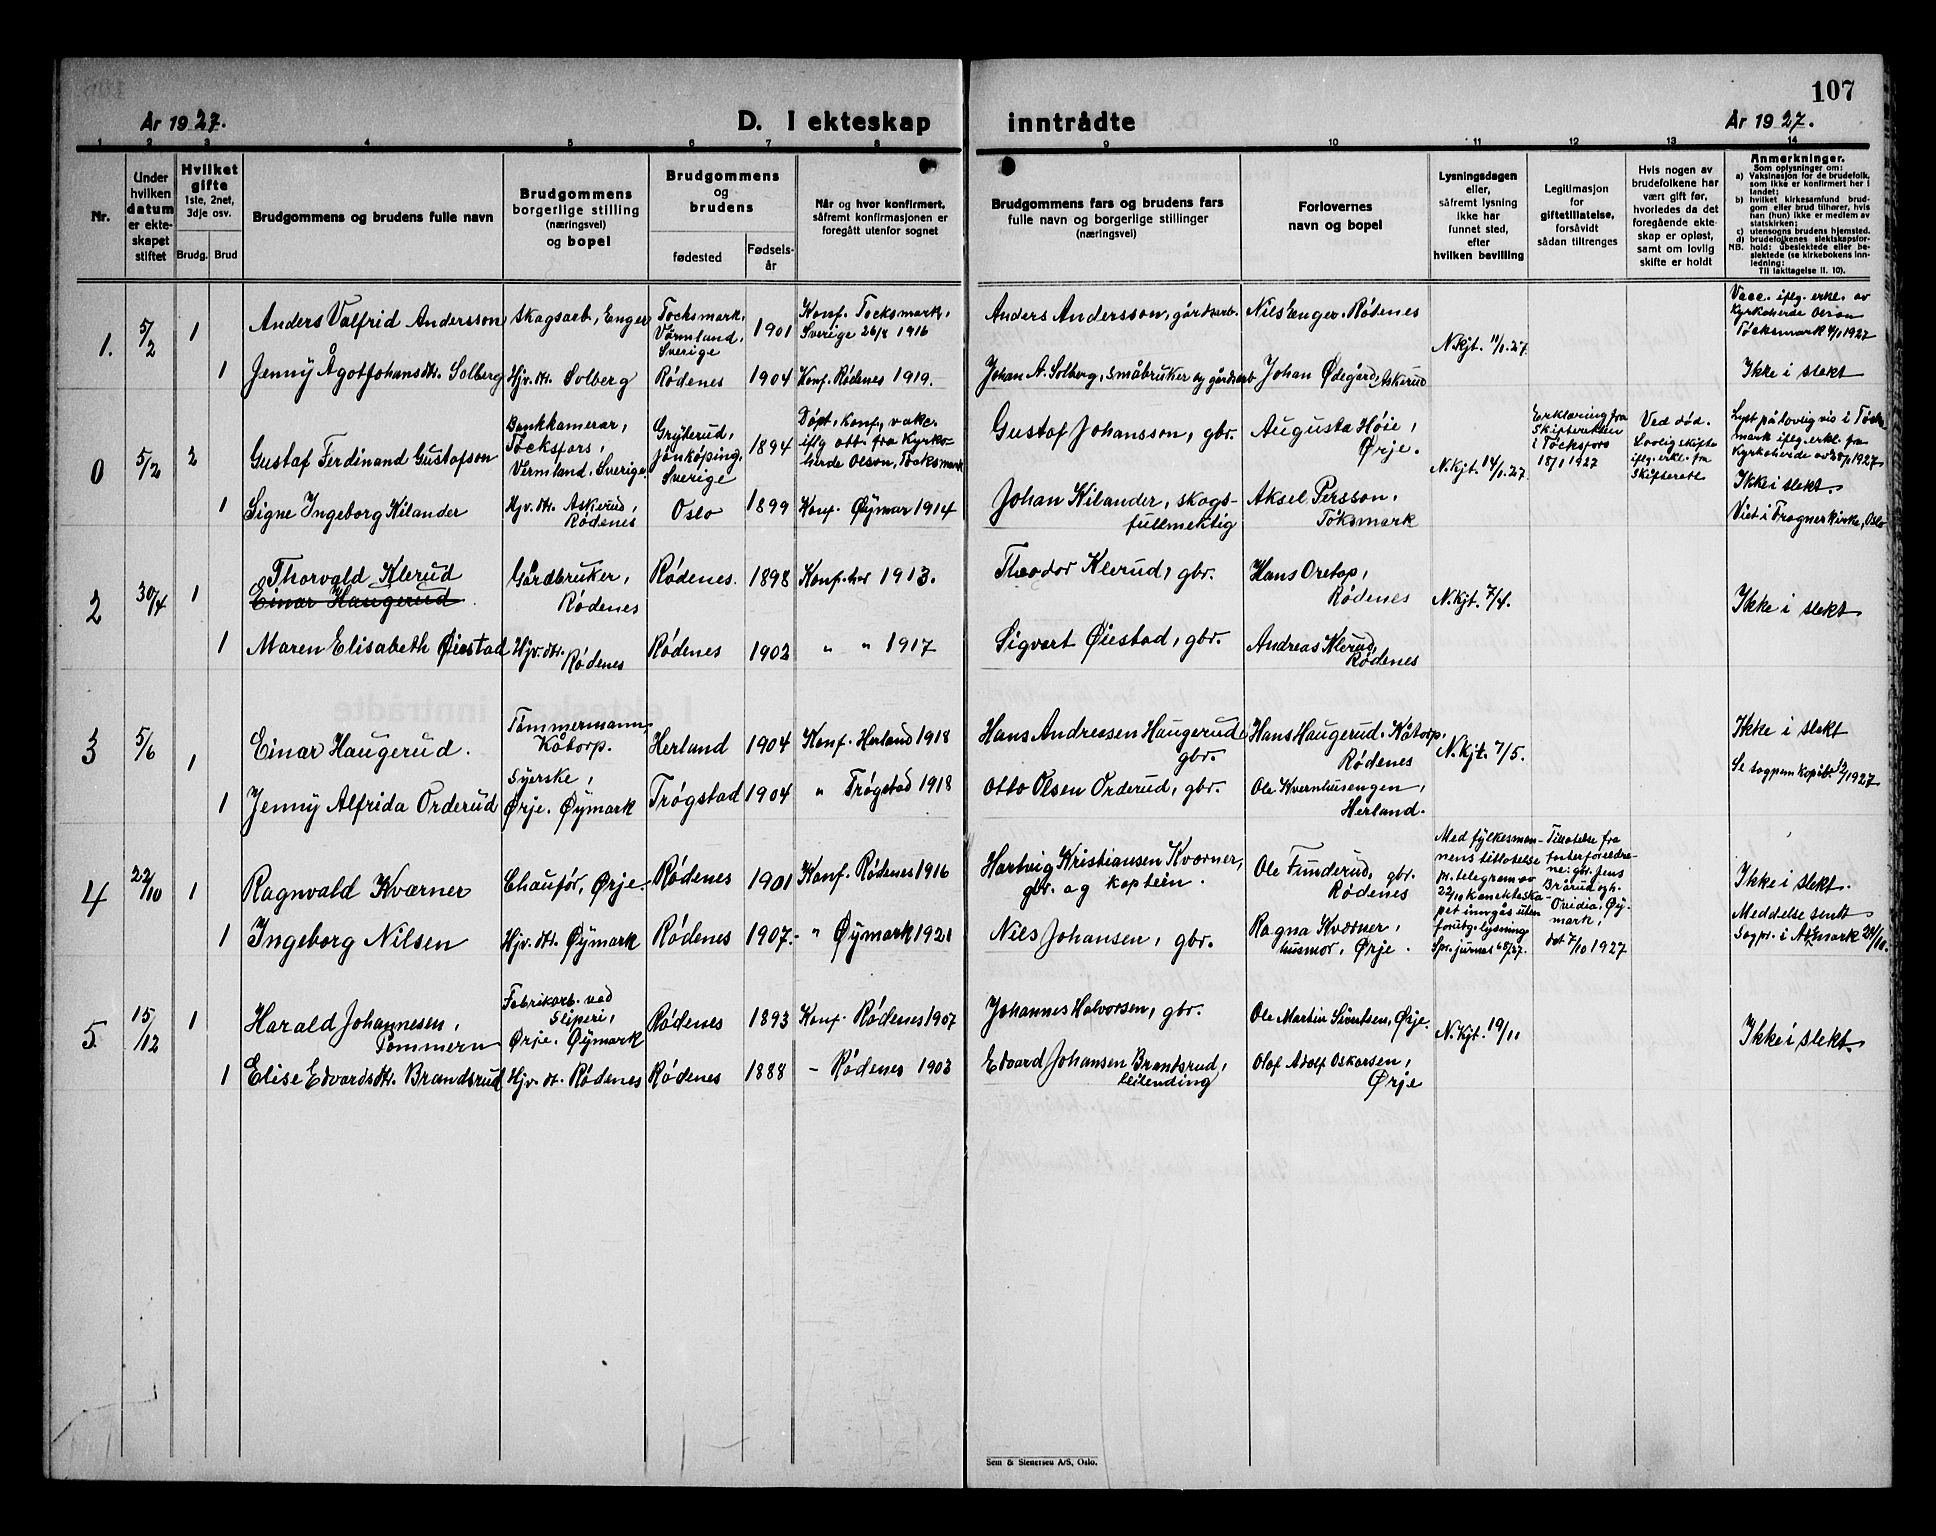 107
År 1927.
D. I ekteskap
inntrådte
År 1927.
1 2 3 4 5 6 7 8 9 10 11 12 13 14
Nr.
Under
hvilken
datum
er ekte-
skapet
stiftet
Hvilket
gifte
1ste, 2net,
3dje osv.
Brudg.
Brud
Brudgommens og brudens fulle navn
Brudgommens
borgerlige stilling
(næringsvei)
og bopel
Brudgommens
og
brudens
fødested
Fødsels-
år
Når og hvor konfirmert,
såfremt konfirmasjonen er
foregått utenfor sognet
Brudgommens fars og brudens fars
fulle navn og borgerlige stillinger
(næringsvei)
Forlovernes
navn og bopel
Lysningsdagen
eller,
såfremt lysning
ikke har
funnet sted,
efter
hvilken bevilling
Legitimasjon
for
giftetillatelse,
forsåvidt
sådan tiltrenges
Hvis nogen av
brudefolkene har
vært gift før,
hvorledes da det
foregående ekte-
skap er opløst,
samt om lovlig
skifte er holdt
Anmerkninger.
Som oplysning om:
a) Vaksinasjon for de brudefolk,
som ikke er konfirmert her i
landet;
b) hvilket kirkesamfund brud-
gom eller brud tilhører, hvis
han (hun) ikke er medlem av
statskirken;
c) utensogns brudens hjemsted.
d) brudefolkenes slektskapsfor-
NB. hold: ubeslektede eller be-
slektede (se kirkebokens inn-
ledning:
Til iakttagelse II. 10).
1.
5/2
1
Anders Valfrid Andersson
Skogsarb., Enger
Tocksmark,
Värmland,
Sverige
1901
Konf. Tocksmark,
Sverige 26/8 1916
Anders Andersson, gårdsarb.
Nils Enger, Rødenes
N.kjt. 11/1.27.
Vacc. iflg. erkl. av
Kyrkoherde Olson
Töcksmark 4/1 1927
1
Jenny Ågot Johansdtr. Solberg
Hjv. dtr. Solberg
Rødenes
1904
Konf. Rødenes 1919.
Johan A. Solberg, småbruker og gårdsarb
Johan Ødegård, Askerud
Ikke i slekt
0
5/2
2
Gustaf Ferdinand Gustafson
Bankkamerar,
Töcksfors,
Vermland, Sverige
Gryterud,
Jönköping,
Sverige
1894
Døpt, Konf., vakc.
iflg att. fra Kyrko-
herde Olson, Tocksmark
Gustaf Johansson, gbr.
Augusta Høie,
Ørje.
N.kjt. 14/1.27
Erklæring fra
Skifteretten
i Töcksfors
18/1 1927
Ved død.
Lovlig skifte
iflg. erkl. fra
Skifterett
Lyst på lovlig vis i Töcks
mark iflg. erkl. fra
Kyrkoherde av 28/1 1927
Ikke i slekt.
Viet i Frogner kirke, Oslo
1
Signe Ingeborg Kilander
Hjv. dtr. Askerud,
Rødenes
Oslo
1899
Konf. Øymar 1914
Johan Kilander, skogs-
fullmektig
Aksel Persson,
Töksmark
2
30/4
1
Thorvald Klerud
Einar Haugerud
Gårdbruker,
Rødenes
Rødenes.
1898
Konf. her 1913.
Theodor Klerud, gbr.
Hans Oretop,
Rødenes
N.kjt. 7/4.
Ikke i slekt
1
Maren Elisabeth Øiestad
Hjv. dtr.
Rødenes
Rødenes
1903
" " 1917
Sigvart Øiestad, gbr.
Andreas Klerud,
Rødenes
3
5/6
1
Einar Haugerud.
Tømmermann
Kåtorp.
Herland
1904
Konf. Herland 1918
Hans Andreasen Haugerud
gbr.
Hans Haugerud, Kåtorp,
Rødenes
N.kjt. 7/5.
Ikke i slekt
1
Jenny Alfrida Orderud
Syerske,
Ørje. Øymark
Trøgstad
1904
" Trøgstad 1918
Otto Olsen Orderud, gbr.
Ole Kvernhusengen,
Herland.
4
22/10
1
Ragnvald Kværner
Chaufør, Ørje.
Rødenes
1901
Konf. Rødenes 1916
Hartvig Kristiansen Kværner,
gbr. og kaptein.
Ole Funderud, gbr.
Rødenes
Med fylkesman
nens tillatelse
pr. telegram av
22/10 kan ekteska-
pet inngås uten
forutg. lysning
Spr. jurnal 68/27.
Tillatelse fra
fosterforeldre-
ne: gbr. Jens
Brårud og h.
Ovidia, Øy-
mark,
dat 7/10 1927
Ikke i slekt.
Meddelse sendt
Sogpr. i Aremark 24/10.
1
Ingeborg Nilsen
Hjv. dtr. Øymark
Rødenes
1907.
" Øymark 1921
Niels Johansen, gbr.
Ragna Kværner,
husmor, Ørje.
5.
15/12
1
Harald Johannesen,
Tømmern
Fabrikarb. ved
Sliperi,
Ørje. Øymark
Rødenes
1893
Konf. Rødenes 1907
Johannes Halvorsen, gbr.
Ole Martin Sivertsen, Ørje.
N.Kjt. 19/11
Ikke i slekt.
1
Elise Edvardsdtr. Brandsrud
Hjv. dt. Rødenes
Rødenes
1888
- Rødenes 1903
Edvard Johansen Brandsrud,
leilending
Olaf Adolf Oskarsen,
Ørje
Sem & Stenersen A/S, Oslo.